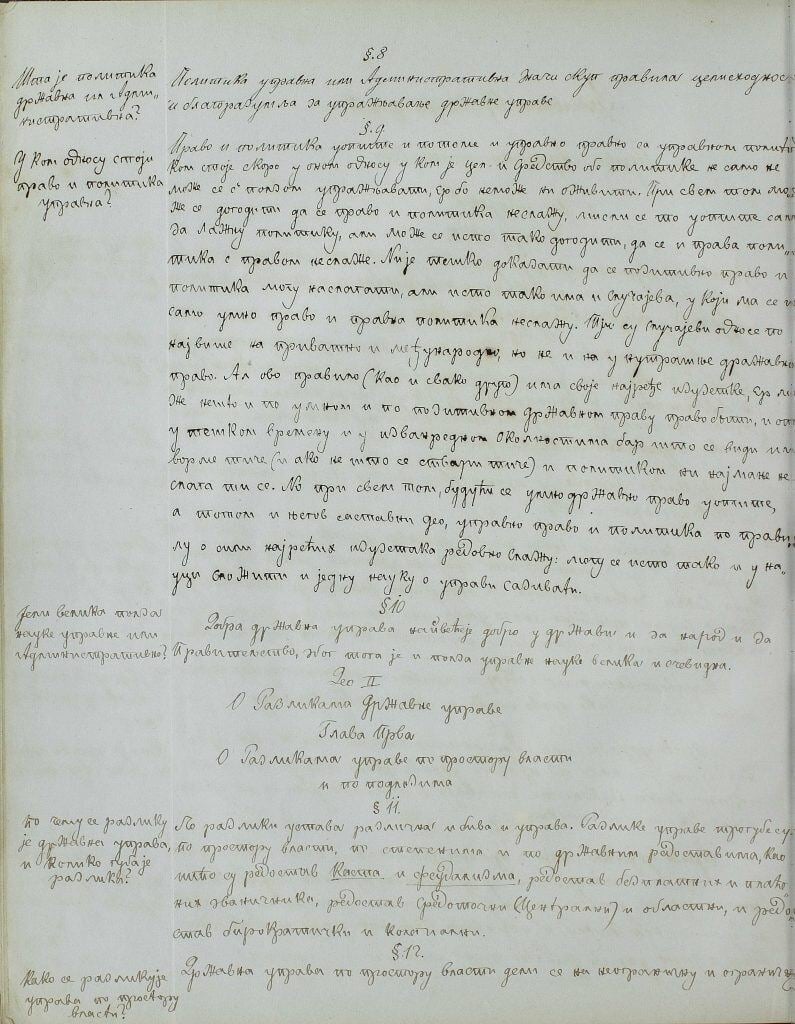 §. 8
Шта је политика
државна или Админ„
нистративна?
Политика управна или Административна значи скуп правила целисходности
и благоразумља за упражњавање државне управе
§. 9.
У ком односу стоји
право и политика
управна?
Право и политика уопште и потоме и управно право са управном полити„
ком стоје скоро у оном односу у ком је цел и средство обо политике не само не
може се с' ползом упражњавати, ер бо неможе ни оживити. При свем том мо„
же се догодити да се право и политика неслажу, мисли се то уопште само
за лажну политику, али може се исто тако догодити, да се и права поли„
тика с правом неслаже. Није тешко доказати да се позитивно право и
политика могу наслагати, али исто тако има и случајева, у који ма се и
само умно право и правна политика неслажу. Три су случајеви односе по
највише на приватно и међународно, но не и на унутрашње државно
право. Ал ово правило (као и свако друго) има своје најређе изузетке, ер мо
же нешто и по умном и по позитивном државном праву право бити, и опет
у тешком времену и у изванредном околностима бар што се види и
ворме тиче (и ако не што се ствари тиче) и политиком ни најмање не
слага ти се. Но при свем том, будући се умно државно право уопште,
а тотом и његов саставни део, управно право и политика по прави„
лу о сим најређих изузетака редовно слажу: могу се исто тако и у на„
уци сложити и једну науку о управи садивати.
§ 10
Јели велика полза
науке управне или
Административне?
Добра државна управа највећеје добро у држави и за народ и за
Правителство, због тога је и полза управне науке велика и очевидна.
Део II
О Разликама Државне управе
Глава Прва
О Разликама управе по простору власти
и поподлезима
§ 11.
По чему се разлику
је државна управа,
и колико губа је
разлика?
По разлики устава различна и бива и управа. Разлике управе трогубе су:
по простору власти, по степенима и по државним редоставима, као
што су редостав Каста и феудализма, редостав безплатних и плаће„
них званичника, редостав Средоточни (Централни) и областни, и редо„
став бирократички и колегиални.
§. 12.
Како се разликује
управа по простору
власти?
Државна управа по простору власти дели се на неограничну и огранич